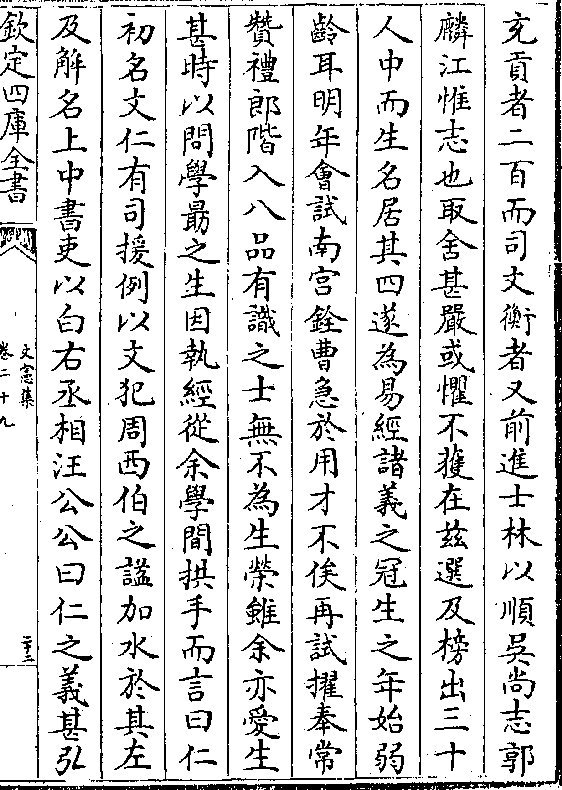 充貢者二百而司文衡者又前進士林以順吳尚志郭
麟江惟志也取舍甚嚴或懼不獲在茲選及榜出三十
人中而生名居其四遂為易經諸義之冠生之年始弱
齡耳明年會試南宫銓曹急於用才不俟再試擢奉常
贊禮郎階入八品有識之士無不為生榮雖余亦愛生
甚時以問學勗之生因執經從余學間拱手而言曰仁
初名文仁有司援例以文犯周西伯之諡加水於其左
及解名上中書吏以白右丞相汪公公曰仁之義甚弘
欽定四庫全書
文憲集
卷二十九
二十二